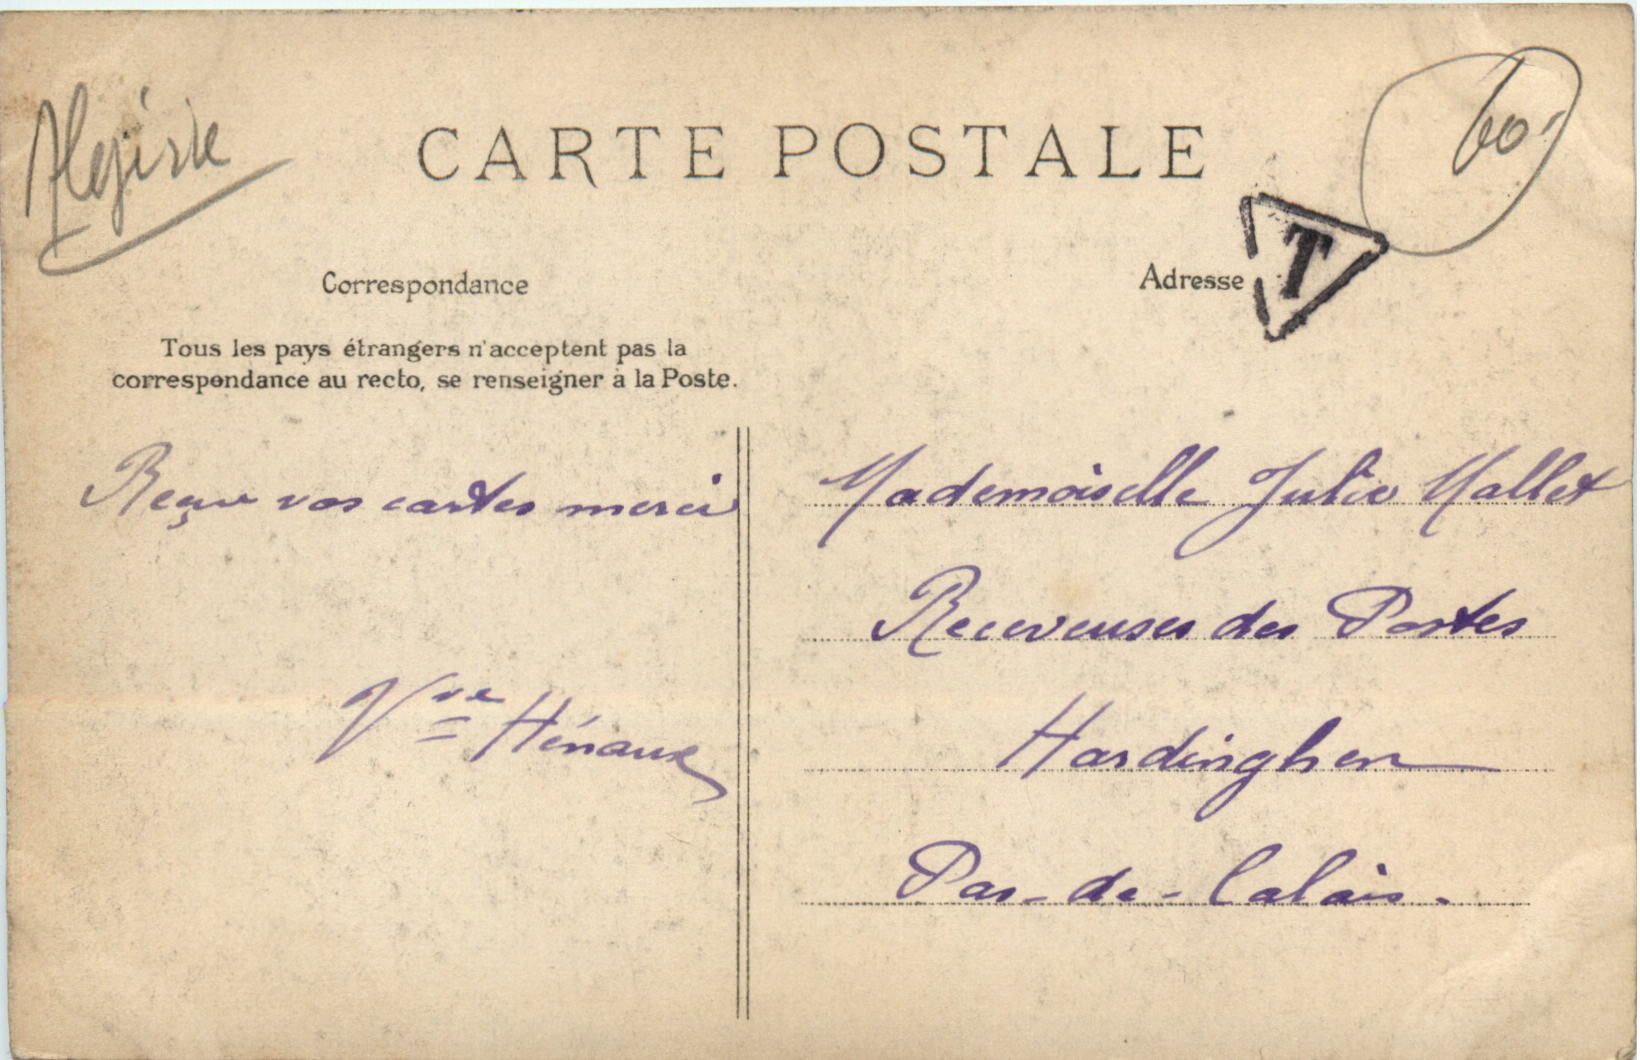 Algérie
60
CARTE POSTALE
T
Correspondance
Adresse
Tous les pays étrangers n'acceptent pas la
correspondance au recto, se renseigner à la Poste.
Reçu vos cartes merci
Vve Hénaux
Mademoiselle Julie Mallet
Receveuses des Postes
Hardinghen
Pas-de-Calais.